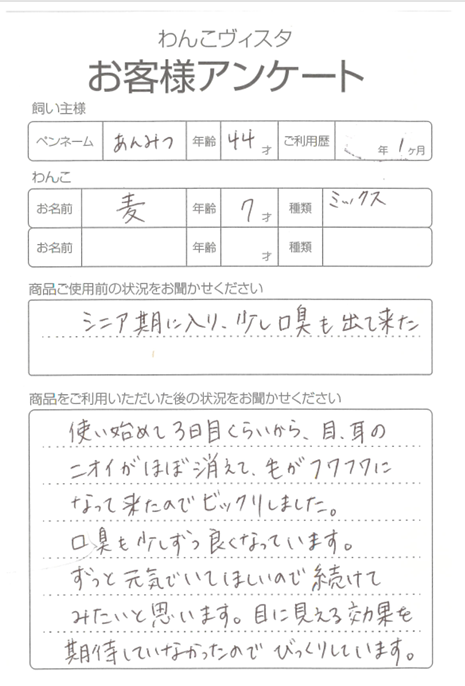 わんこヴィスタ
お客様アンケート
飼い主様
ペンネーム あんみつ 年齢 44才 ご利用歴 年 1ヶ月
わんこ
お名前 麦 年齢 7才 種類 ミックス
お名前 年齢 才 種類
商品ご使用前の状況をお聞かせください
シニア期に入り、少し口臭も出て来た
商品をご利用いただいた後の状況をお聞かせください
使い始めて3日目くらいから、目、耳の
ニオイがほぼ消えて、毛がフワフワに
なって来たのでビックリしました。
口臭も少しずつ良くなっています。
ずっと元気でいてほしいので続けて
みたいと思います。目に見える効果を
期待していなかったのでびっくりしています。